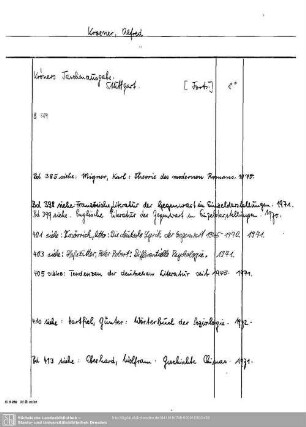 Kroener, Alfred
Kröners Taschenausgabe.
Stuttgart.
[Forts.]
Bd 385 siehe: Migner, Karl: Theorie des modernen Romans.
Bd 398 siehe Französische Literatur der Gegenwart in Einzeldarstellungen. 1971.
Bd 399 siehe. Englische Literatur der Gegenwart in Einzeldarstellungen. 1970.
401 siehe: Otto: Die deutsche Lyrik der Gegenwart 1945-1970. 1971.
403 siehe: Hofstätter, Peter Robert: Differentielle Psychologie. 1971.
405 siehe: Tendenzen der deutschen Literatur seit 1945. 1971.
410 siehe: Hartfiel, Günter: Wörterbuch der Soziologie. 1972.
Bd 413 siehe: Eberhard, Wolfram: Geschichte Chinas. 1971.
Sächsische Landesbibliothek -
Staats- und Universitätsbibliothek Dresden